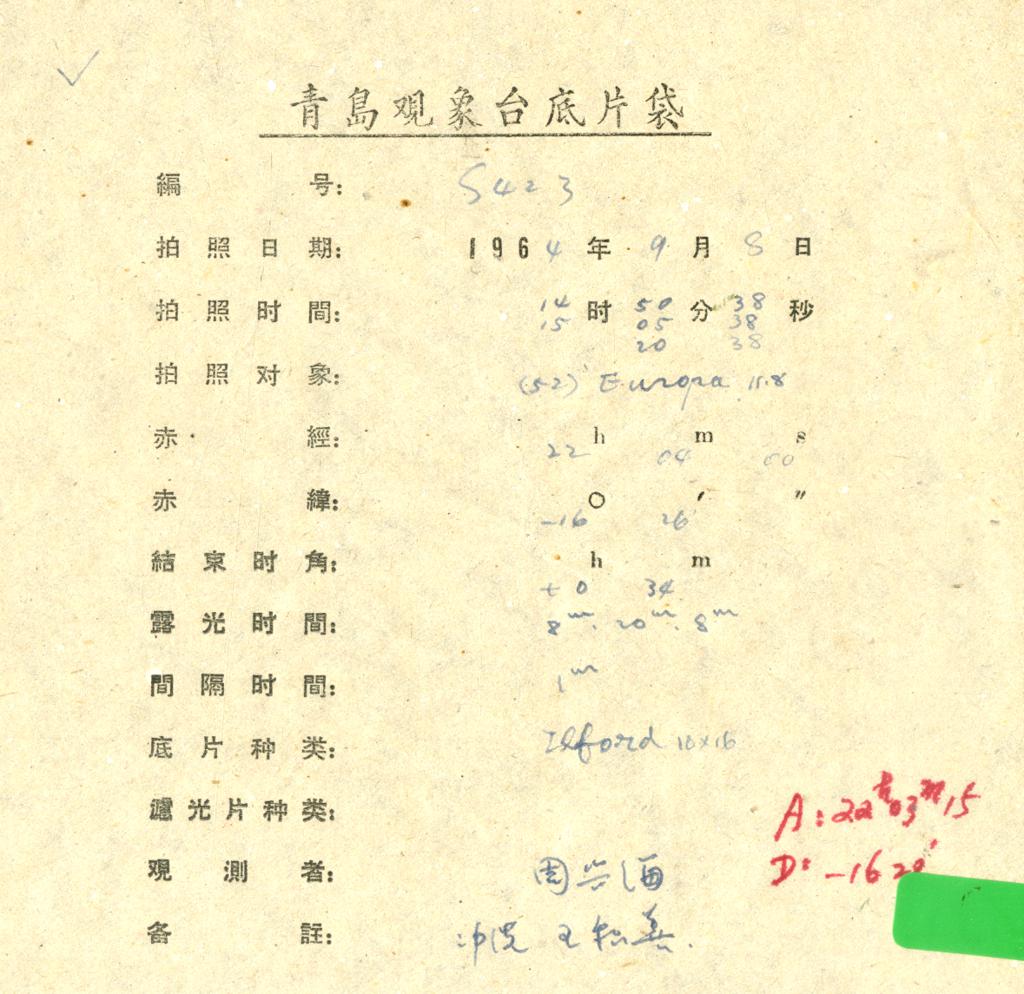 青島观象台底片袋
編号: S423
拍照日期: 1964年9月8日
拍照时間: 14时50分38秒
15 05 38
20 38
拍照对象: (52) Europa 11.8
赤經: 22h 04m 00s
赤緯: -16° 26′ ″
結束时角: +0h 34m
露光时間: 8m. 20m. 8m
間隔时間: 1m
底片种类: Ilford 16×16
濾光片种类:
A: 22h03m15
观測者: 周兴海
D: -16 20′
备註: 冲洗 王